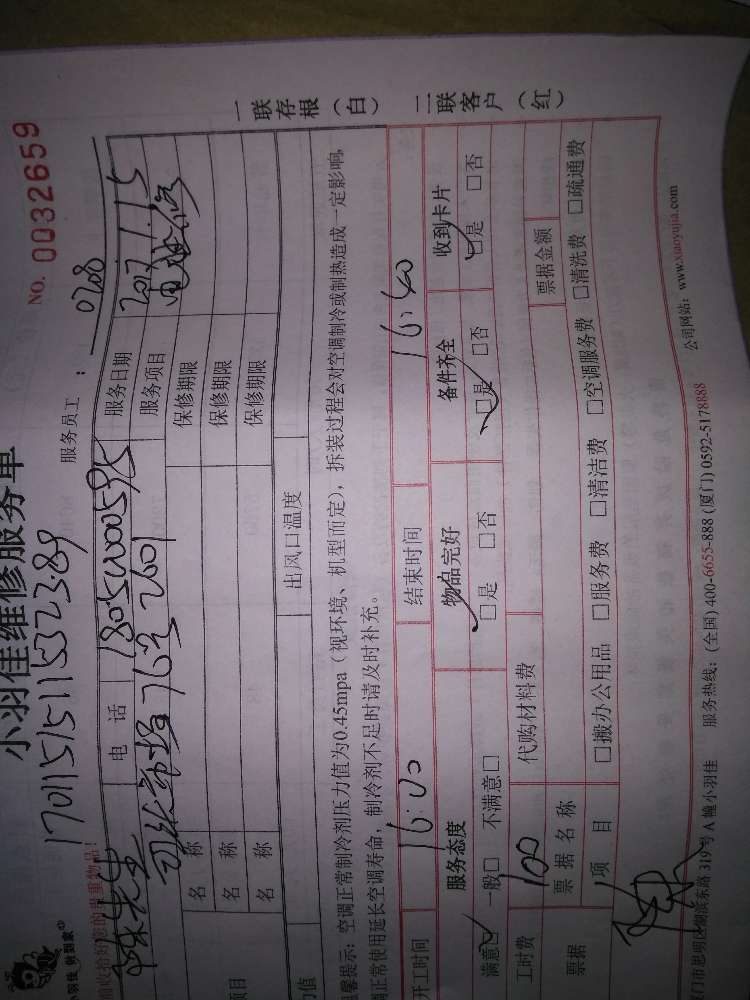 小羽佳维修服务单
NO. 0032659
小羽佳 做到家
170115151153 23.89
服务员工： 0708
收拾好您的贵重物品！
陈先生 电话 服务日期 2017.1.15
76号 2601 服务项目
项目 名称 保修期限
名称 保修期限
名称 保修期限
力值 出风口温度
温馨提示：空调正常制冷剂压力值为0.45mpa（视环境、机型而定），拆装过程会对空调制冷或制热造成一定影响，
调正常使用延长空调寿命，制冷剂不足时请及时补充。
开工时间 16:00 结束时间 16:40
服务态度 物品完好 备件齐全 收到卡片
满意☑ 一般□ 不满意□ ☑是 □否 ☑是 □否 ☑是 □否
工时费 100 代购材料费
票据 票据名称 票据金额
项目 □搬办公用品 □服务费 □清洁费 □空调服务费 □清洗费 □疏通费
陈
门市思明区湖滨东路319号A幢小羽佳 服务热线：(全国) 400-6655-888 (厦门) 0592-5178888 公司网站：www.xiaoyujia.com
一联存根（白） 二联客户（红）